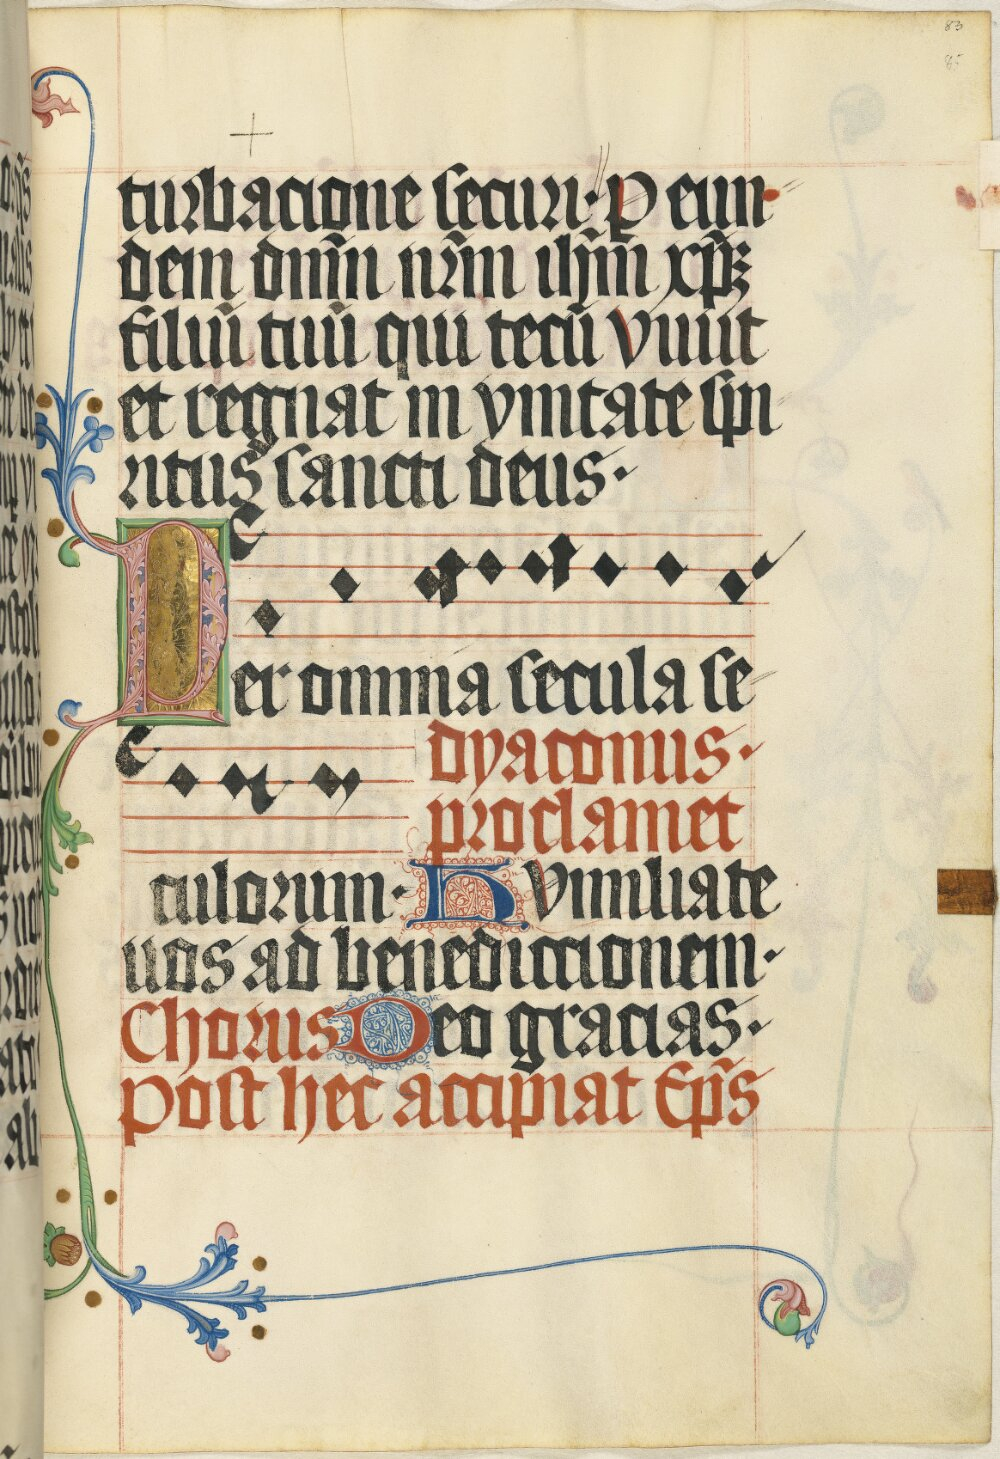 83
85
turbacione securi· P eun
dem dnm̄ nr̄m ihm̄ xp̄ꝫ
filiū tuū qui tecū viuit
et regnat in vnitate spi
ritus sancti deus·
Per omnia secula se
dyaconus·
proclamet
culorum· Humiliate
uos ad benediccionem·
Chorus Deo gracias·
Post hec accipiat Ep̄s